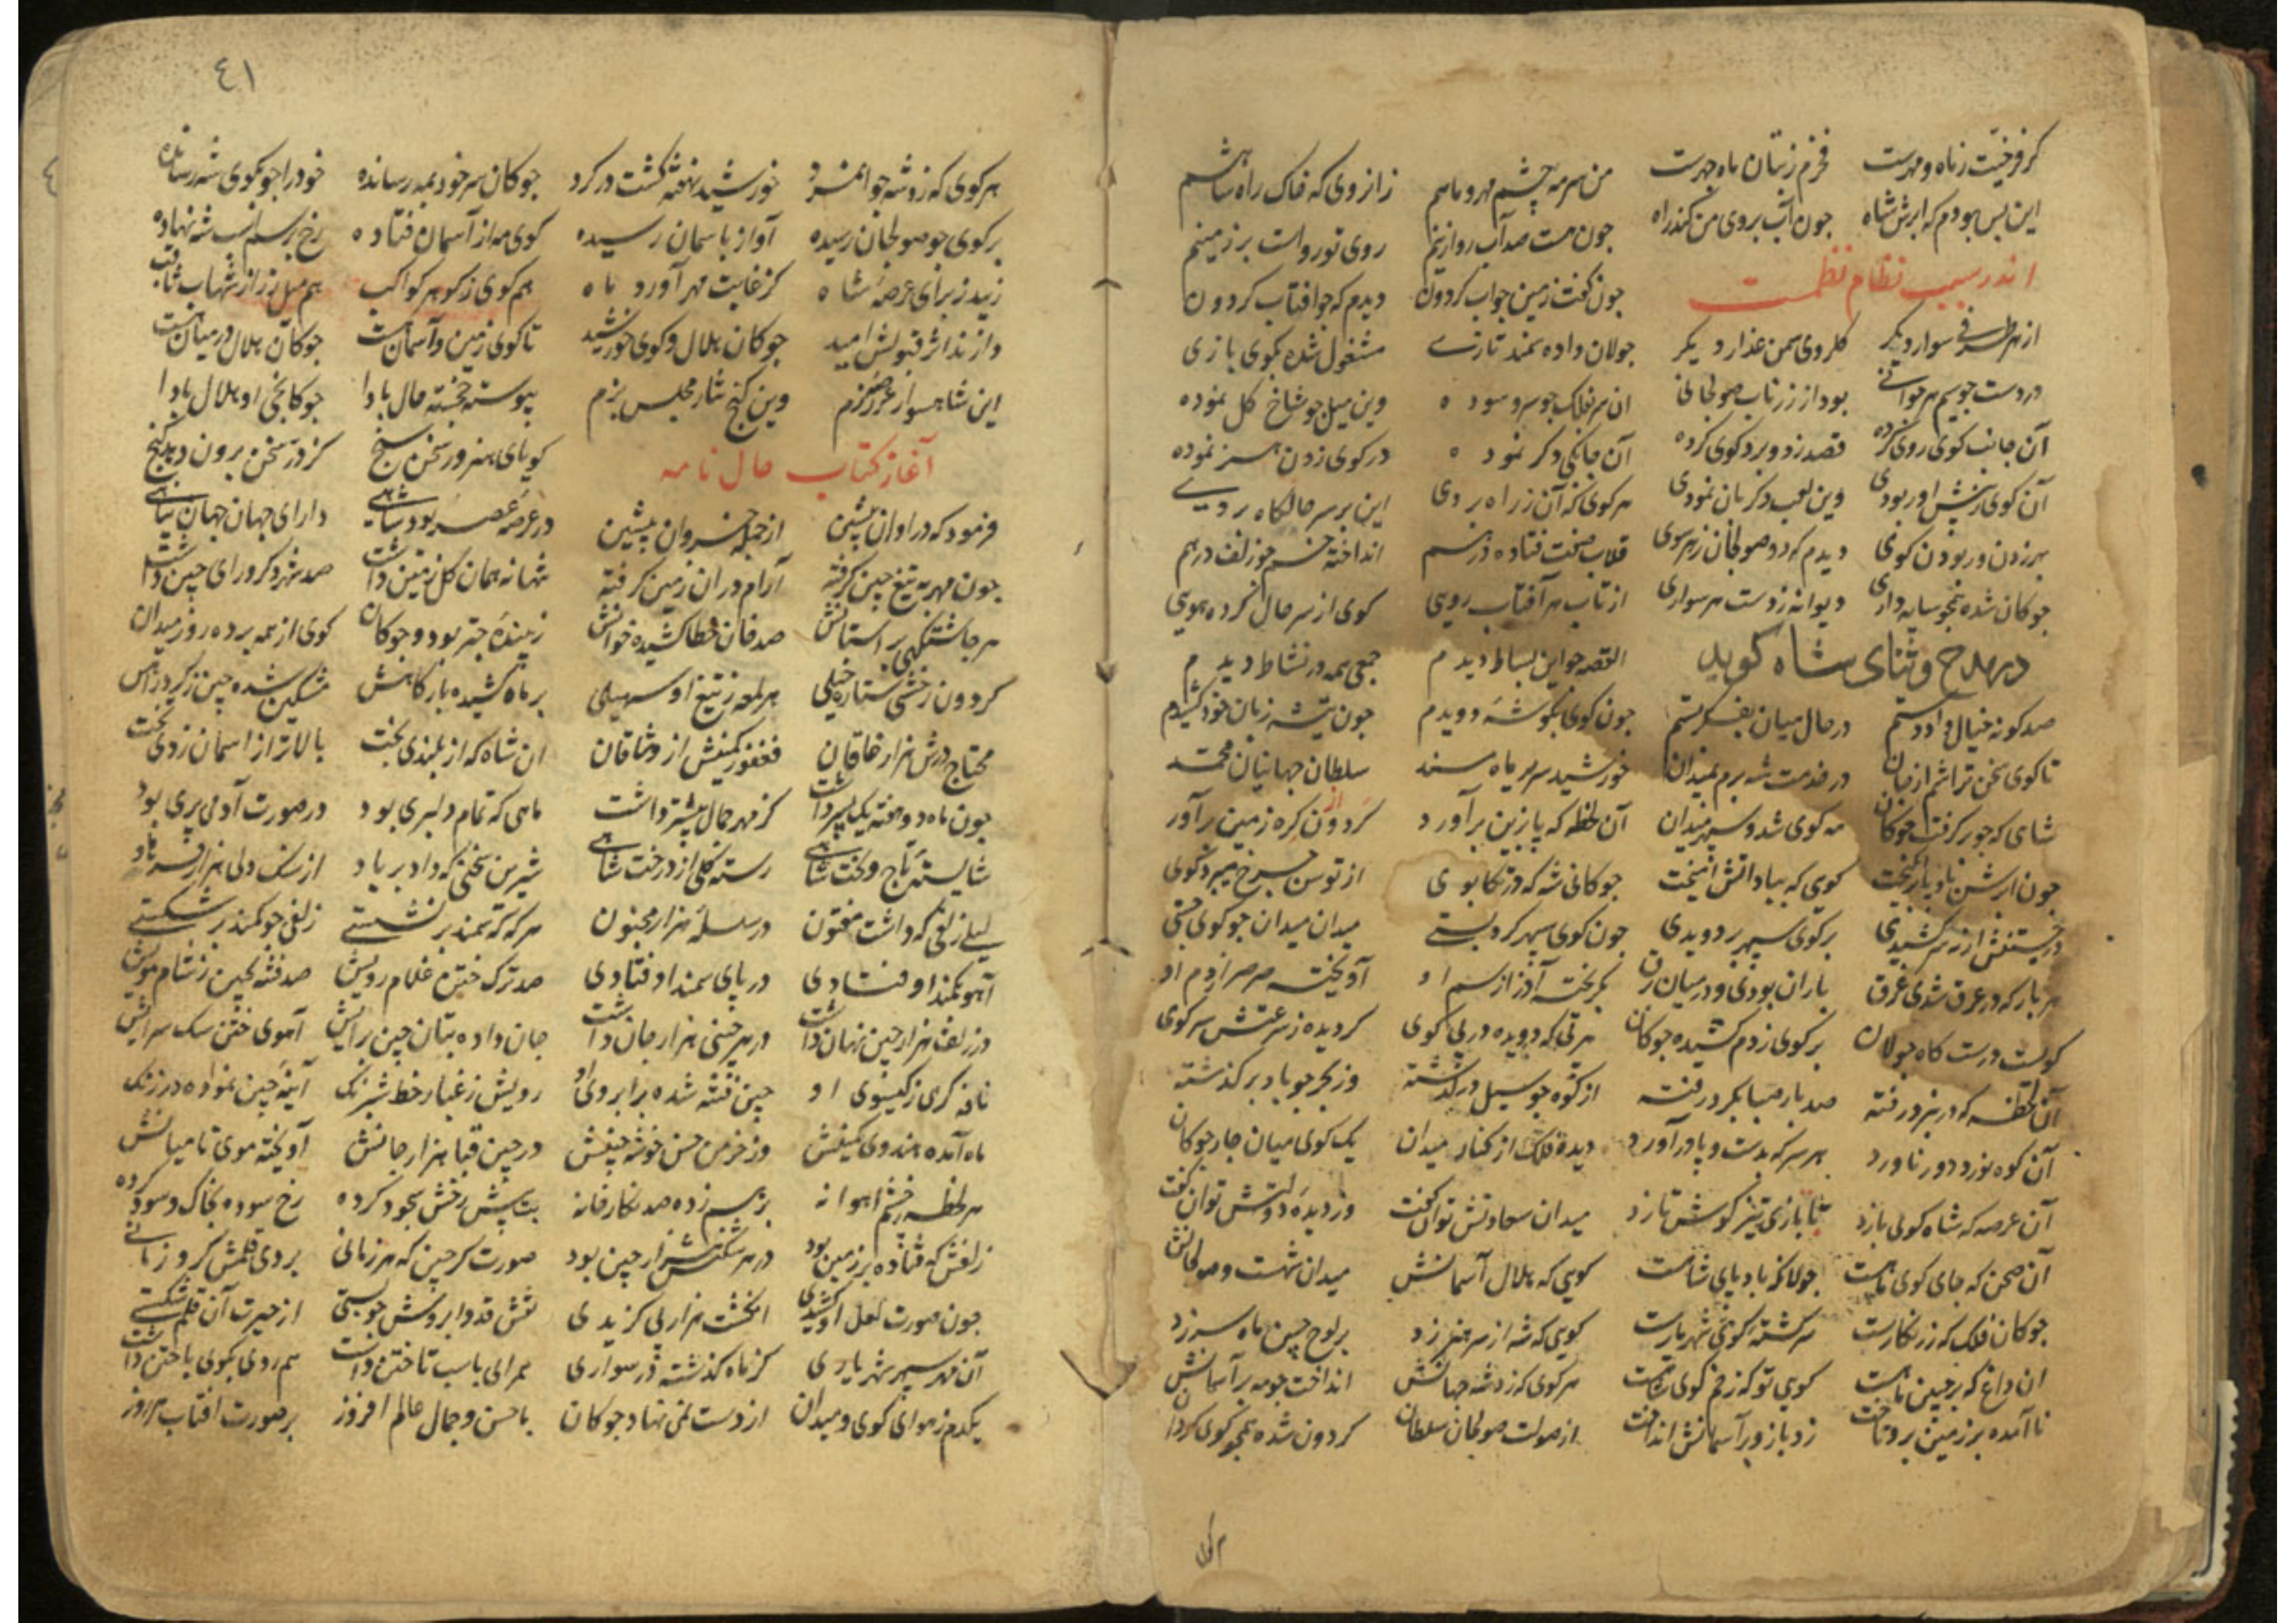 کر فرخیت ز ماه و مهرست فخرم ز بتان ماه چهرست من سرمه چشم مهر و ماهم زانروی که خاک راه شاهم
این بس بودم که ابرش شاه چون آب بروی من کند راه چون هست صد آب رو ازینم روی تو رواست بر زمینم
اندر سبب نظام نظمست چون گفت زمین جواب کردون دیدم که چو افتاب کردون
از هر طرفی سوار دیکر کلروی سمن عذار دیکر جولان داده سمند تازی مشغول شده بکوی بازی
در دست چو سیم هر جوانی بود از زر ناب صولجانی ان سر بفلک چو سرو سوده وین میل چو شاخ کل نموده
آن جانب کوی روی کرده قصد زد و برد کوی کرده آن چابکی دکر نموده در کوی زدن هنر نموده
آن کوی ز پیش او ربودی وین لعب دکر بان نمودی هر کوی که آن ز راه بردی این بر سر حالکاه بردی
بهر زدن و ربودن کوی دیدم که دو صولجان ز هر سوی قلاب صفت فتاده در هم انداخته خم چو زلف در هم
چوکان شده همچو سایه داری دیوانه ز دست هر سواری از تاب هر آفتاب رویی کوی از سر حال کرده هویی
در مدح و ثنای شاه کوید القصه چو این بساط دیدم جمعی همه در نشاط دیدم
صد کونه خیال داد دستم در حال میان بفکر بستم چون کوی بکوشه دویدم چون تیشه زبان خود کشیدم
تا کوی سخن تراشم از جان در خدمت شه برم بمیدان خورشید سریر ماه سند سلطان جهانیان محمد
شاهی که چو بر کرفت چوکان مه کوی شد و سپهر میدان آن لحظه که پا بزین برآورد کردون کره زمین برآورد
چون ابرش باد پا برانکیخت کویی که بباد آتش آمیخت چوکانی شه که در تکاپوی از توسن چرخ میبرد کوی
در جستنش از زه سرکشیدی بر کوی سپهر بردویدی چون کوی سپهر کرد بستی میدان میدان چو کوی جستی
هر بار که در عرق شدی غرق باران بودی و در میان برق بکریخته آذر از سم او آویخته صرصر از دم او
کویست درست کاه جولان بر کوی ز دم کشیده چوکان هر تک که دویده در پی کوی کردیده ز سرعتش سر کوی
آن لحظه که در هنر درفته صد بار صبا بکرد رفته از کوه چو سیل در کذشته وز بحر چو باد بر کذشته
آن کوه نورد دور ناورد هر سر که بدست و پا درآورد دیده فلک از کنار میدان یک کوی میان چار چوکان
آن عرصه که شاه کوی بازد تا بازی تیز کوش تازد میدان سعادتش توان کفت وز دیده دولتش توان کفت
آن صحن که جای کوی ماهست جولانکه باد پای شاهست کویی که هلال آسمانش میدان شهست و صولجانش
چوکان فلک که زرنکارست سرکشته کوی شهریارست کویی که شه از سر هنر زد بر لوح جبین ماه سر زد
ان داغ که بر جبین ماهست کویی تو که زخم کوی شاهست هر کوی که زد شه جهانش انداخت چو مه بر آسمانش
نا آمده بر زمینش برداخت زد باز و بر آسمانش انداخت از صولت صولجان سلطان کردون شده همچو کوی کردان
٤١
هر کوی که زد شه جوانمرد خورشید نهفته کشت در کرد چوکان سر خود بمه رسانده خود را چو بکوی شه رسانده
بر کوی چو صولجان رسیده آواز باسمان رسیده کوی مه از آسمان فتاده رخ بر سم اسب شه نهاده
زیبد ز برای عرصه شاه کز غایت مهر آورد ماه هم کوی ز کوهر کواکب هم میل زر از شهاب ثاقب
دارند از در قبولش امید چوکان هلال و کوی خورشید تا کوی زمین و آسمانست چوکان هلال در میانست
این شاهسوار عرصه رزم وین کنج نثار مجلس بزم پیوسته خجسته حال بادا چوکانچی او هلال بادا
آغاز کتاب حال نامه کویای هنرور سخن سنج کز در سخن برون دهد کنج
فرمود که در اوان پیشین از جمله خسروان پیشین در عرصه عصر بود شاهی دارای جهان جهان پناهی
چون مهر به تیغ چین کرفته آرام در ان زمین کرفته شاهانه همان کل زمین داشت صد شهر و کر ورای چین داشت
هر چاشتکهی بر استانش صد خان خطا کشیده خوانش زیبنده چتر بود و چوکان کوی از همه برده روز میدان
کردون رخشی ستاره خیلی هر لمعه ز تیغ او سهیلی بر ماه کشیده بارکاهش مشکین شده چین ز کرد راهش
محتاج درش هزار خاقان فغفور کمینش از وشاقان ان شاه که از بلندی بخت بالاتر از آسمان زدی تخت
چون ماه دو هفته یک پسر داشت کز مهر جمال بیشتر داشت ماهی که تمام دلبری بود در صورت آدمی پری بود
شایسته تاج و تخت شاهی رسته کلی از درخت شاهی شیرین سخنی که داد بر باد از سنک دلی هزار فرهاد
لیلی زلفی که داشت مفتون در سلسله هزار مجنون هر که که سمند برنشستی زلفی چو کمند برشکستی
آهو بکمند او فتادی در پای سمند او فتادی صد ترک ختن غلام رویش صد فتنه بچین ز شام مویش
در زلف هزار چین نهان داشت در هر چینی هزار جان داشت جان داده بتان چین برایش آهوی ختن سک سرایش
نافه کری ز کیسوی او چین فتنه شده بر ابروی او رویش ز غبار خط شبرنک آینه چین نموده در زنک
ماه آمده هندوی کمینش وز خرمن حسن خوشه چینش در چین قبا هزار جانش آویخته موی تا میانش
هر لحظه بچشم اهوانه بر هم زده صد نکارخانه بت پیش رخش سجود کرده رخ سوده بخاک و سود کرده
زلفش که فتاده بر زمین بود در هر شکنش هزار چین بود صورت کر چین که هر زمانی بر وی قلمش کرو زبانی
چون صورت لعل او کشیدی انکشت هزار پی کزیدی نقش قد و ابروش چو بستی از حیرت آن قلم شکستی
آن مهر سپهر شهریاری کز ماه کذشته در سواری همرایی باسب تاختن داشت هم روی بکوی باختن داشت
یکدم ز هوای کوی و میدان از دست نمی نهاد چوکان با حسن و جمال عالم افروز بر صورت افتاب هر روز